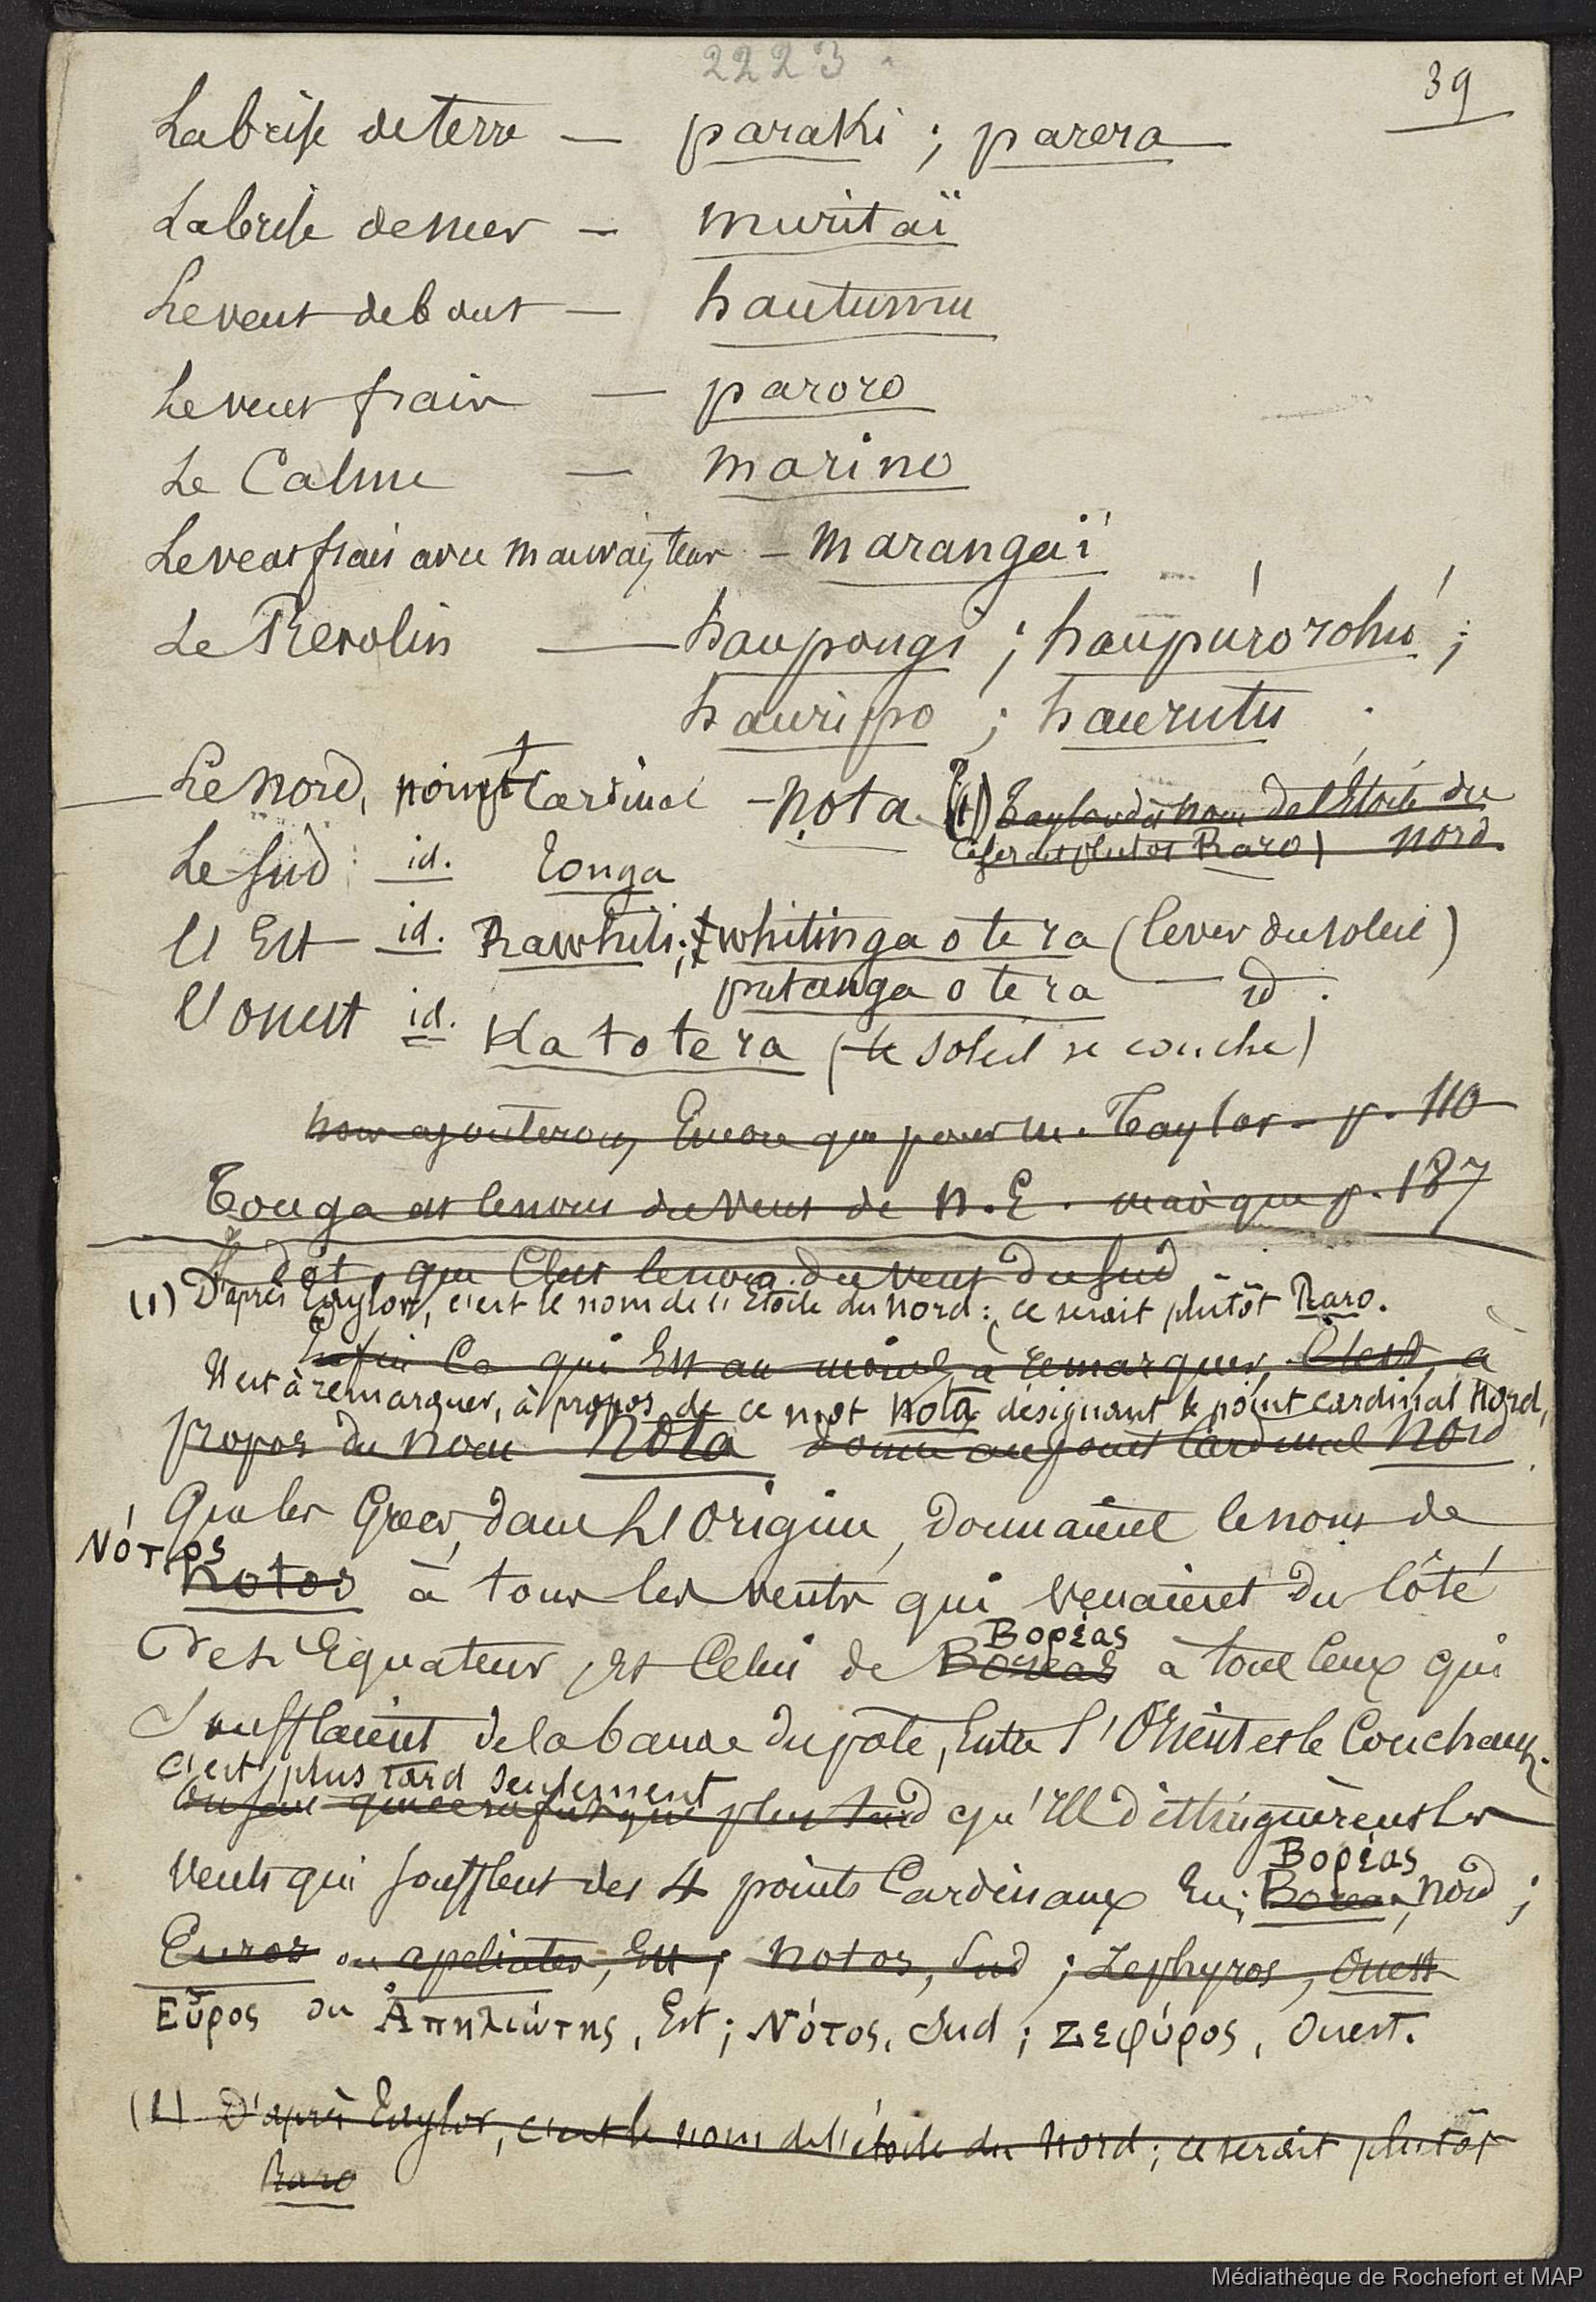 2223
39
La brise de terre — paraki ; parera
La brise de mer — muritaï
Le vent debout — hautumu
Le vent frais — pororo
Le Calme — marino
Le vent frais avec mauvais temps — marangaï
Le Revolin — haupongi ; haupúrórohú ;
hauripo ; haurutu .
Le nord, point Cardinal — nota (1) Taylor dit nom de l'Étoile du
ce serait plutôt Raro) nord.
Le sud id. Tonga
L'Est id. Rawhiti ; whitinga o te ra (lever du soleil)
putanga o te ra — id.
L'ouest id. Ka to te ra (le soleil se couche)
nous ajouterons Encore que pour M. Taylor — p. 110
Tonga est le nom du vent de N.E. mais que p. 187
il dit que C'est le nom du vent du sud
(1) D'après Taylor, c'est le nom de l'Étoile du Nord : ce serait plutôt Raro.
Enfin Ce qui Est au moins à remarquer, C'est, à
Il est à remarquer, à propos de ce mot nota désignant le point cardinal Nord,
propos du nom Nota donné au point Cardinal Nord
Que les Grecs, dans L'Origine, donnaient le nom de
Νότος
Notos à tous les vents qui venaient du Côté
Βορέας
de L'Equateur, et Celui de Boreas à tous Ceux qui
Soufflaient de la bande du pôle, Entre l'Orient et le Couchant.
C'est plus tard seulement
plus tard qu'Ils distinguèrent les
Βορέας
Vents qui soufflent des 4 points Cardinaux En ; Boreas, nord ;
Euros ou apeliotes, Est ; Notos, Sud ; Zephyros, Ouest
Εὖρος ou Ἀπηλιώτης, Est ; Νότος, Sud ; Ζεφύρος, Ouest.
(1) D'après Taylor, c'est le nom de l'étoile du Nord ; ce serait plutôt
Raro
Médiathèque de Rochefort et MAP